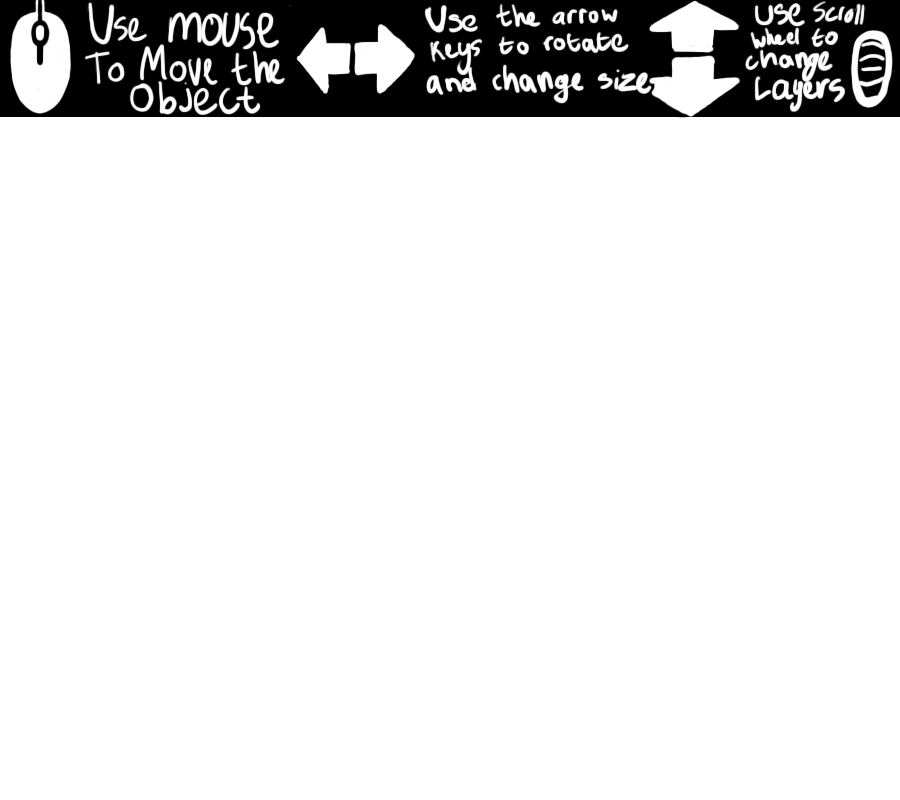 Use mouse
To Move the
Object
Use the arrow
Keys to rotate
and change size
Use Scroll
wheel to
change
Layers